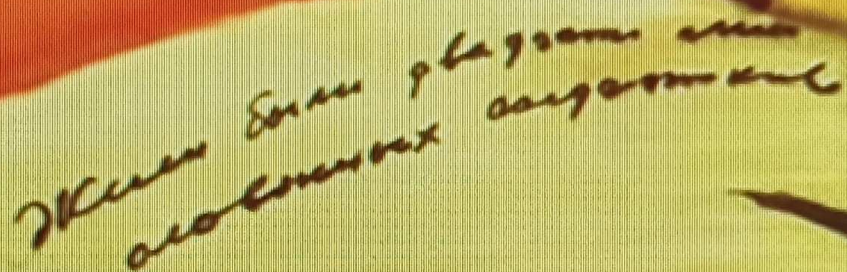 Жили были двадцать пять
оловянных солдатиков